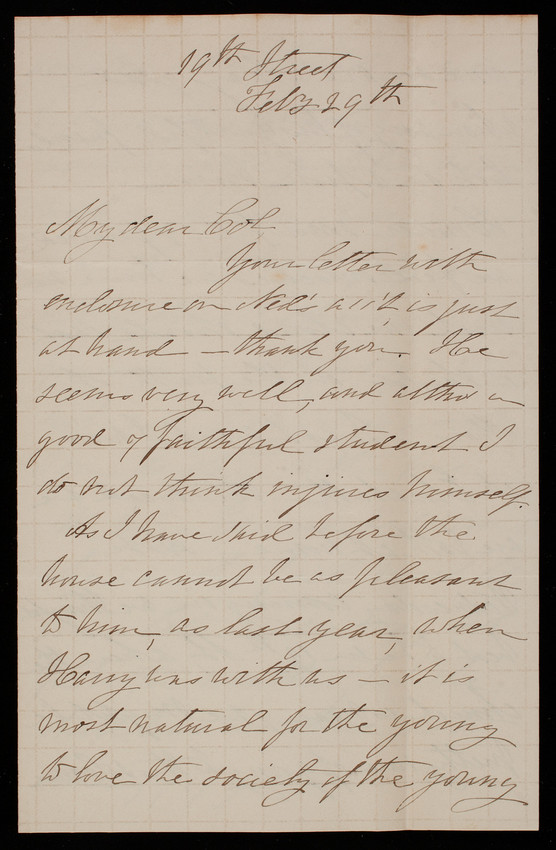 19th Street
Feby 29th
My dear Col.
Your letter with
enclosure on Ned's a/c't is just
at hand — thank you. He
seems very well, and altho' a
good & faithful student I
do not think injures himself.
As I have said before the
house cannot be as pleasant
to him, as last year, when
Harry was with us — it is
most natural for the young
to love the society of the young